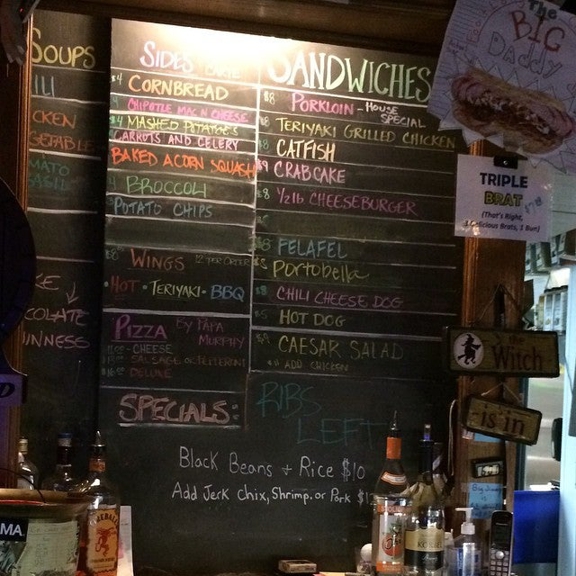 SOUPS
SIDES
$4 CORNBREAD
CHIPOTLE MAC N CHEESE
$4 MASHED POTATOES
CARROTS AND CELERY
BAKED ACORN SQUASH
BROCCOLI
POTATO CHIPS
WINGS 12 PER ORDER
HOT • TERIYAKI • BBQ
PIZZA BY PAPA
MURPHY
CHEESE
DELUXE
SANDWICHES
$8 PORKLOIN - HOUSE
SPECIAL
$8 TERIYAKI GRILLED CHICKEN
CATFISH
$9 CRABCAKE
$8 1/2 lb CHEESEBURGER
$8 FELAFEL
PORTOBELLA
$8 CHILI CHEESE DOG
$5 HOT DOG
CAESAR SALAD
ADD CHICKEN
SPECIALS:
RIBS
LEFT
Black Beans + Rice $10
Add Jerk Chix, Shrimp, or Pork
The
BIG
Daddy
TRIPLE
BRAT
(That's Right,
3 Delicious Brats, 1 Bun!)
the
Witch
is in
FIREBALL